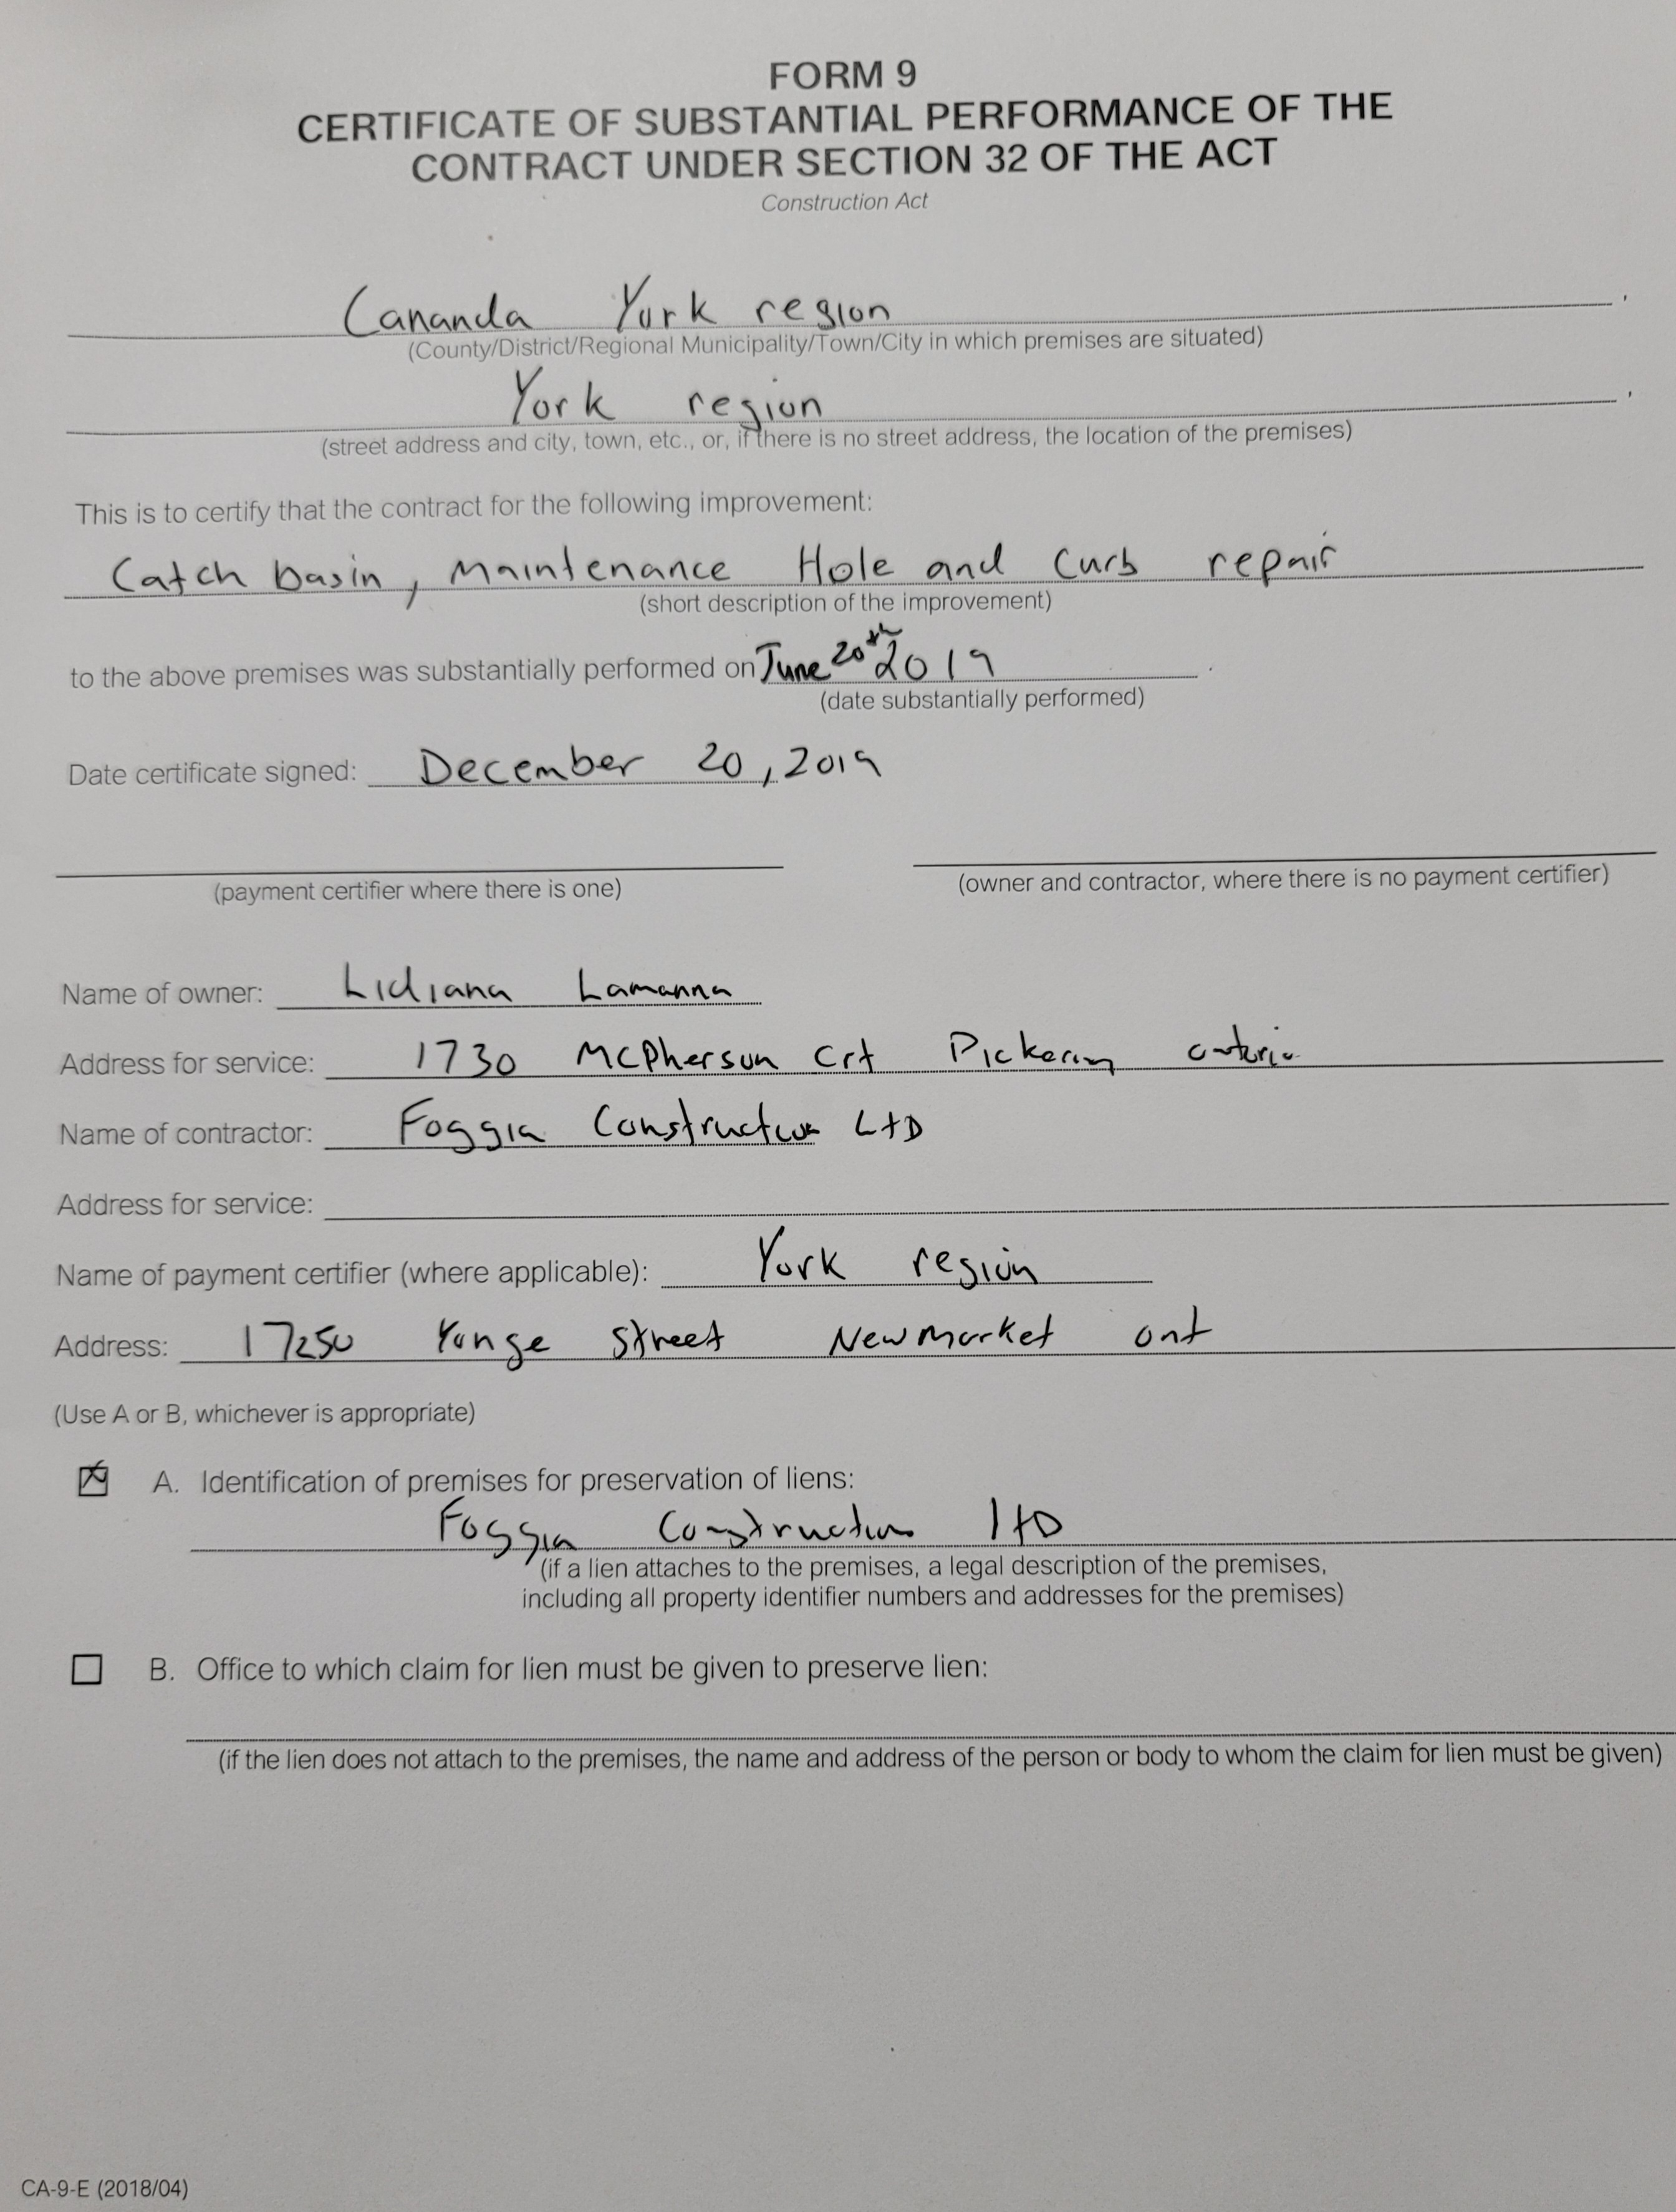 FORM 9
CERTIFICATE OF SUBSTANTIAL PERFORMANCE OF THE
CONTRACT UNDER SECTION 32 OF THE ACT
Construction Act
Cananda York region,
(County/District/Regional Municipality/Town/City in which premises are situated)
York region,
(street address and city, town, etc., or, if there is no street address, the location of the premises)
This is to certify that the contract for the following improvement:
Catch basin, Maintenance Hole and Curb repair
(short description of the improvement)
to the above premises was substantially performed on June 20th 2019.
(date substantially performed)
Date certificate signed: December 20, 2019
(payment certifier where there is one) (owner and contractor, where there is no payment certifier)
Name of owner: Lidiana Lamanna
Address for service: 1730 McPherson Crt Pickering ontario
Name of contractor: Foggia Construction LtD
Address for service:
Name of payment certifier (where applicable): York region
Address: 17250 Yonge Street Newmarket ont
(Use A or B, whichever is appropriate)
A. Identification of premises for preservation of liens:
Foggia Construction ltD
(if a lien attaches to the premises, a legal description of the premises,
including all property identifier numbers and addresses for the premises)
B. Office to which claim for lien must be given to preserve lien:
(if the lien does not attach to the premises, the name and address of the person or body to whom the claim for lien must be given)
CA-9-E (2018/04)